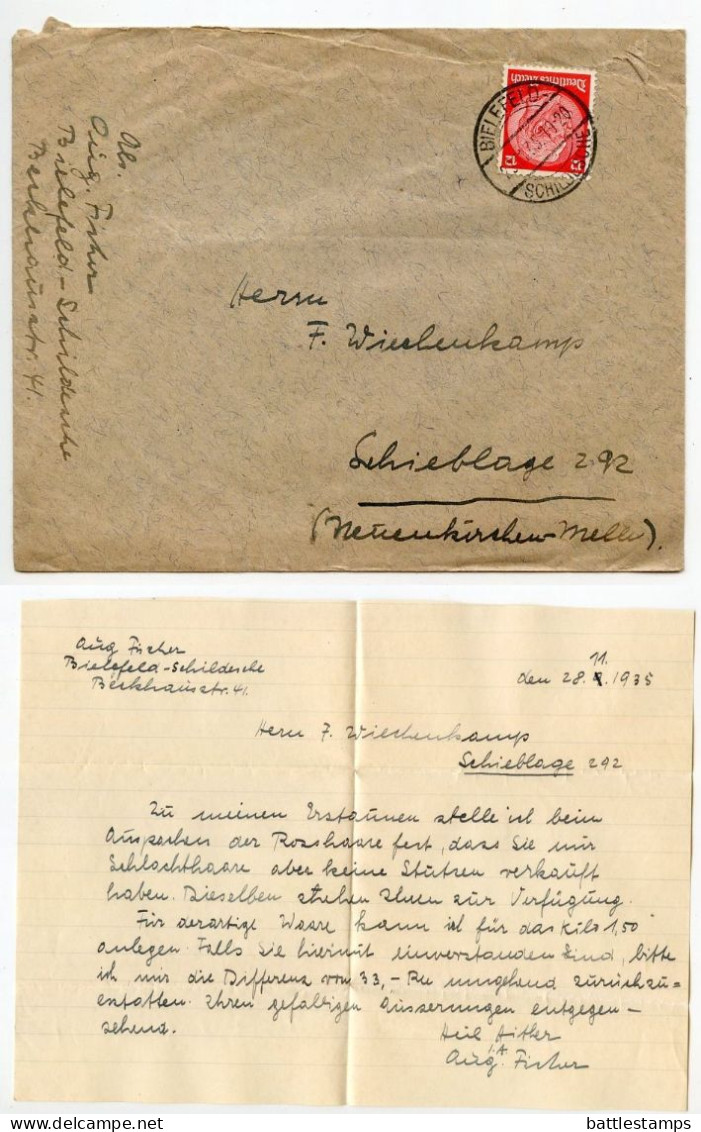 Abs.
Aug. Fischer
Bielefeld-Schildesche
Beckhausstr. 41.
Deutsches Reich
12 12
BIELEFELD
SCHILDESCHE
Herrn
F. Wiechenkamp
Schieblage 292
(Neuenkirchen-Melle).
Aug Fischer
Bielefeld-Schildesche
Beckhausstr. 41.
11.
den 28. 1935
Herrn F. Wiechenkamp
Schieblage 292
Zu meinen Erstaunen stelle ich beim
Auspacken der Rosshaare fest, dass Sie mir
Schlachthaare aber keine Stutzen verkauft
haben. Dieselben stehen Ihnen zur Verfügung.
Für derartige Waare kann ich für das Kilo 1,50
anlegen. Falls Sie hiermit einverstanden sind, bitte
ich mir die Differenz von 33,- Rm umgehend zurückzu=
erstatten. Ihren gefälligen Äusserungen entgegen-
sehend.
Heil Hitler
i.A.
Aug. Fischer
battlestamps